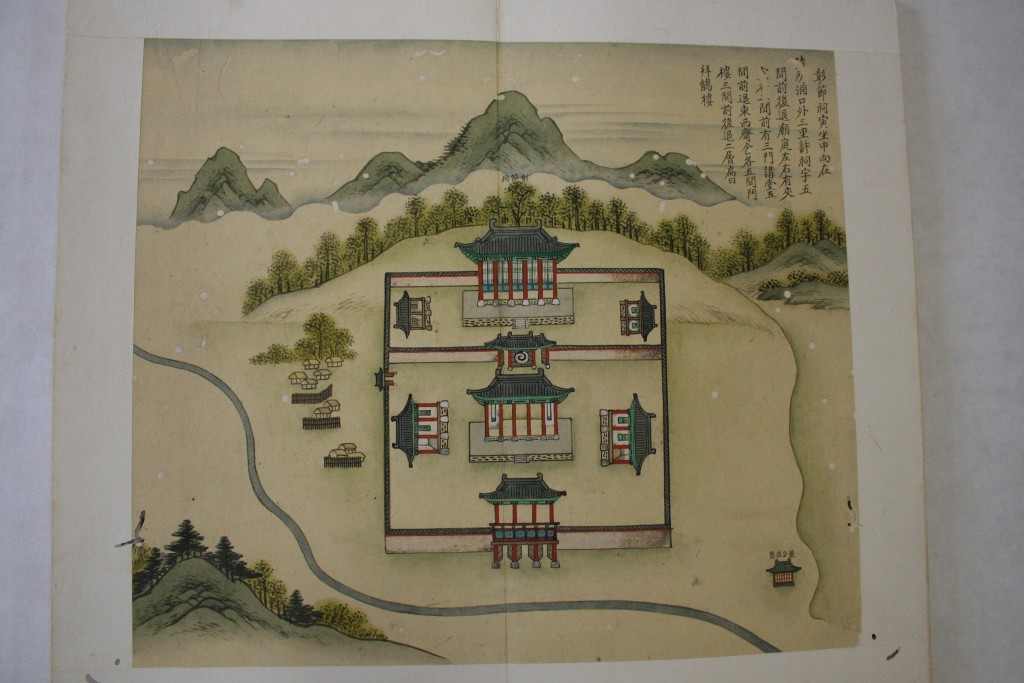 彰節祠寅坐申向在
洞口外三里許祠宇五
間前後退廟庭左右有夾
一間前有三門講堂五
間前退東西齋舍各五間門
樓三間前後退二層扁曰
拜鵑樓
彰節祠